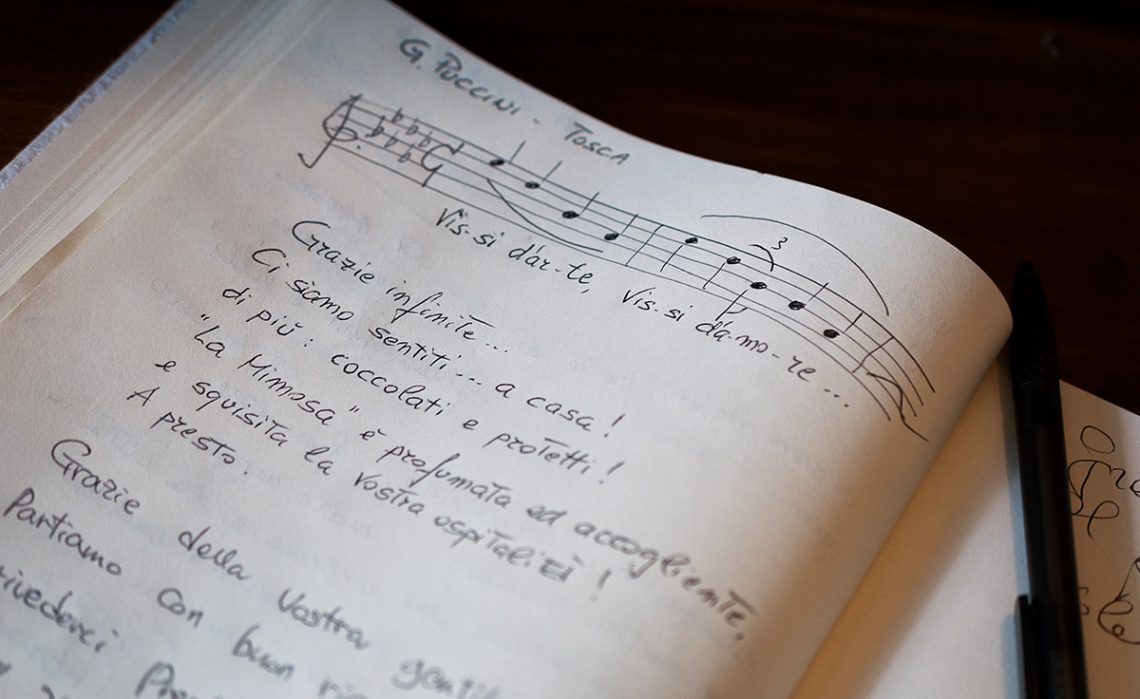 G. PUCCINI - TOSCA
3
Vis-si d'ar-te, Vis-si d'a-mo-re...
Grazie infinite...
Ci siamo sentiti... a casa!
di più: coccolati e protetti!
"La Mimosa" è profumata ed accogliente,
e squisita la vostra ospitalità!
A presto.
Grazie della vostra
Partiamo con buon